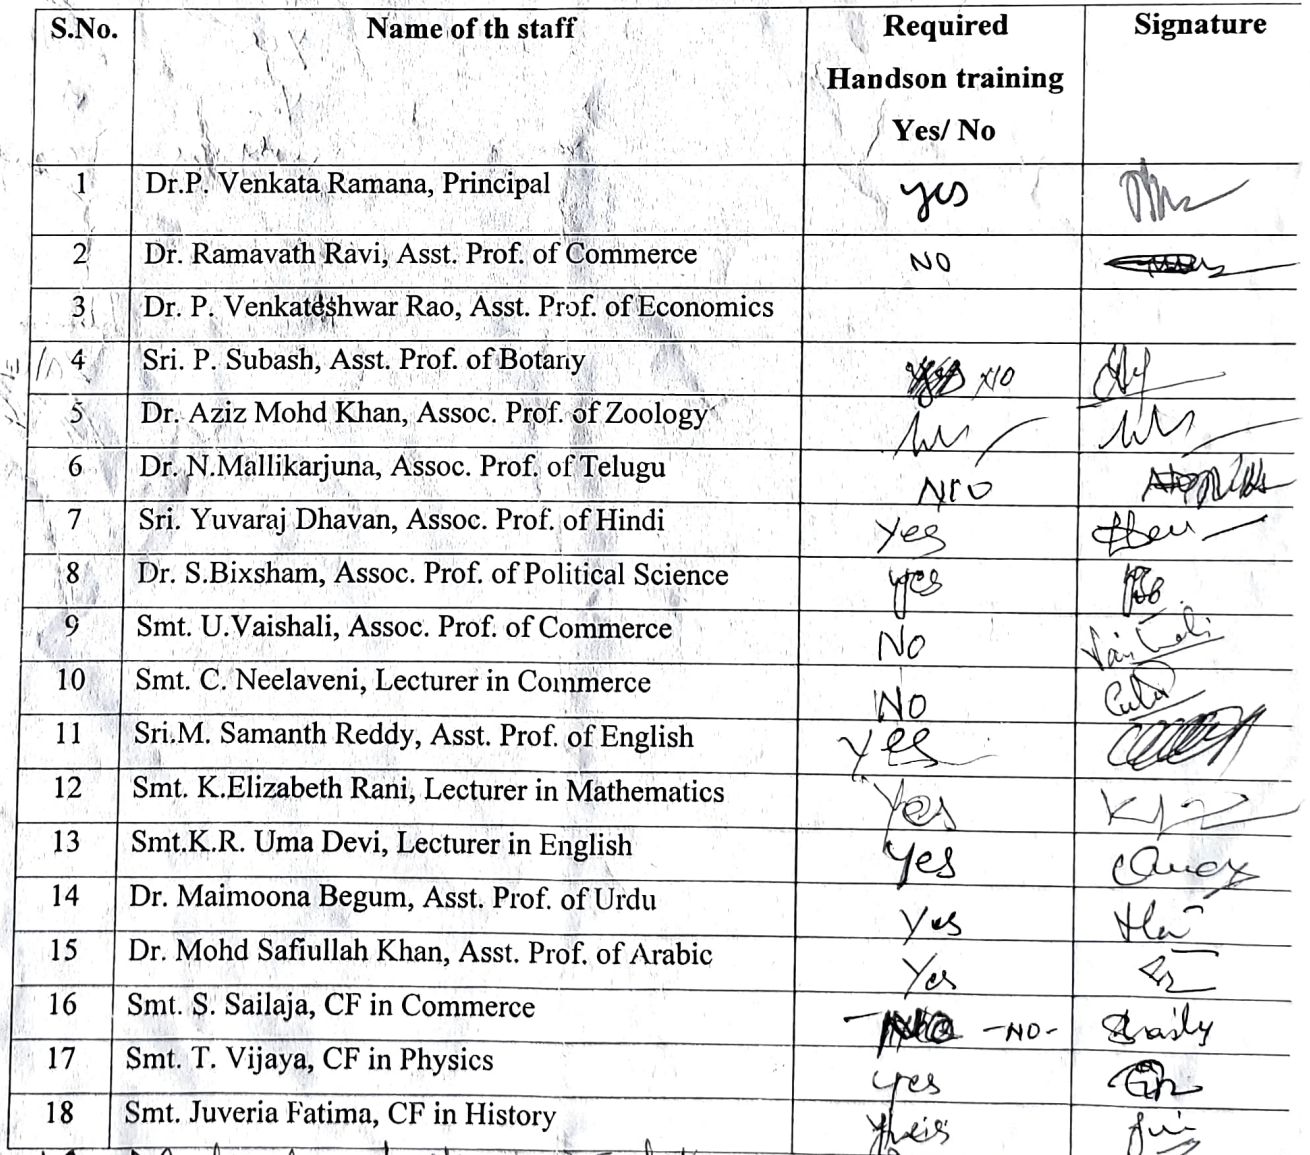 S.No. Name of th staff Required Handson training Yes/ No Signature
1 Dr.P. Venkata Ramana, Principal yes
2 Dr. Ramavath Ravi, Asst. Prof. of Commerce NO
3 Dr. P. Venkateshwar Rao, Asst. Prof. of Economics
4 Sri. P. Subash, Asst. Prof. of Botany NO
5 Dr. Aziz Mohd Khan, Assoc. Prof. of Zoology
6 Dr. N.Mallikarjuna, Assoc. Prof. of Telugu
7 Sri. Yuvaraj Dhavan, Assoc. Prof. of Hindi Yes
8 Dr. S.Bixsham, Assoc. Prof. of Political Science yes
9 Smt. U.Vaishali, Assoc. Prof. of Commerce No Vaishali
10 Smt. C. Neelaveni, Lecturer in Commerce NO
11 Sri.M. Samanth Reddy, Asst. Prof. of English Yes
12 Smt. K.Elizabeth Rani, Lecturer in Mathematics Yes
13 Smt.K.R. Uma Devi, Lecturer in English Yes
14 Dr. Maimoona Begum, Asst. Prof. of Urdu Yes
15 Dr. Mohd Safiullah Khan, Asst. Prof. of Arabic Yes
16 Smt. S. Sailaja, CF in Commerce -NO-
17 Smt. T. Vijaya, CF in Physics yes
18 Smt. Juveria Fatima, CF in History